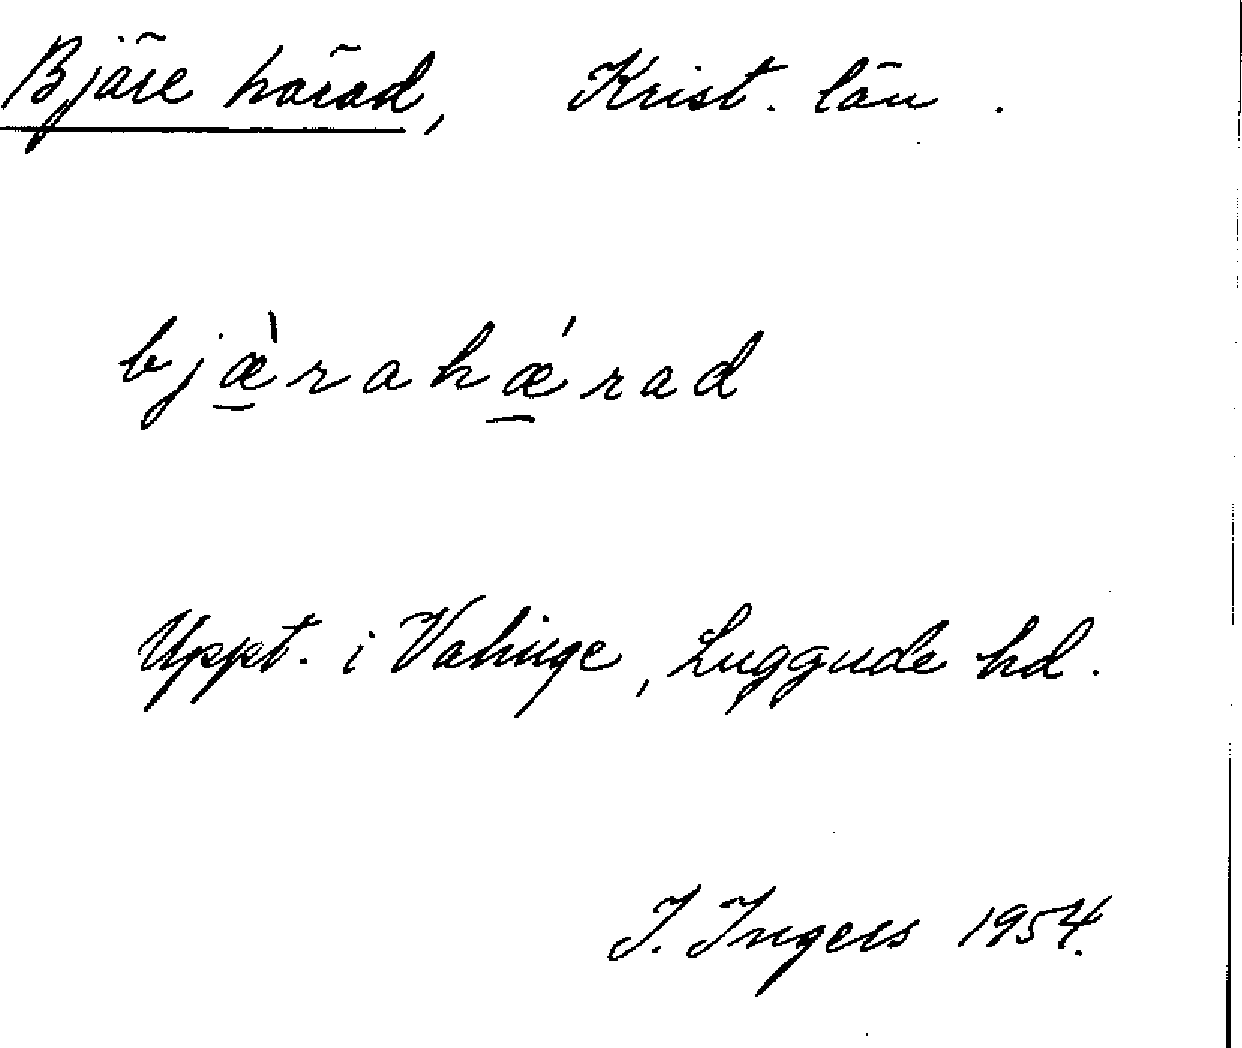 Bjäre härad, Krist. län.
bjæ̱̀rahǽ̱rad
Uppt. i Välinge, Luggude hd.
I. Ingers 1954.